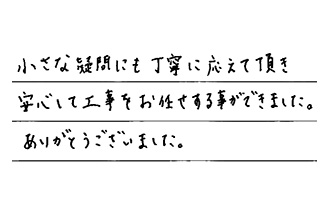 小さな疑問にも丁寧に応えて頂き
安心して工事をお任せする事ができました。
ありがとうございました。